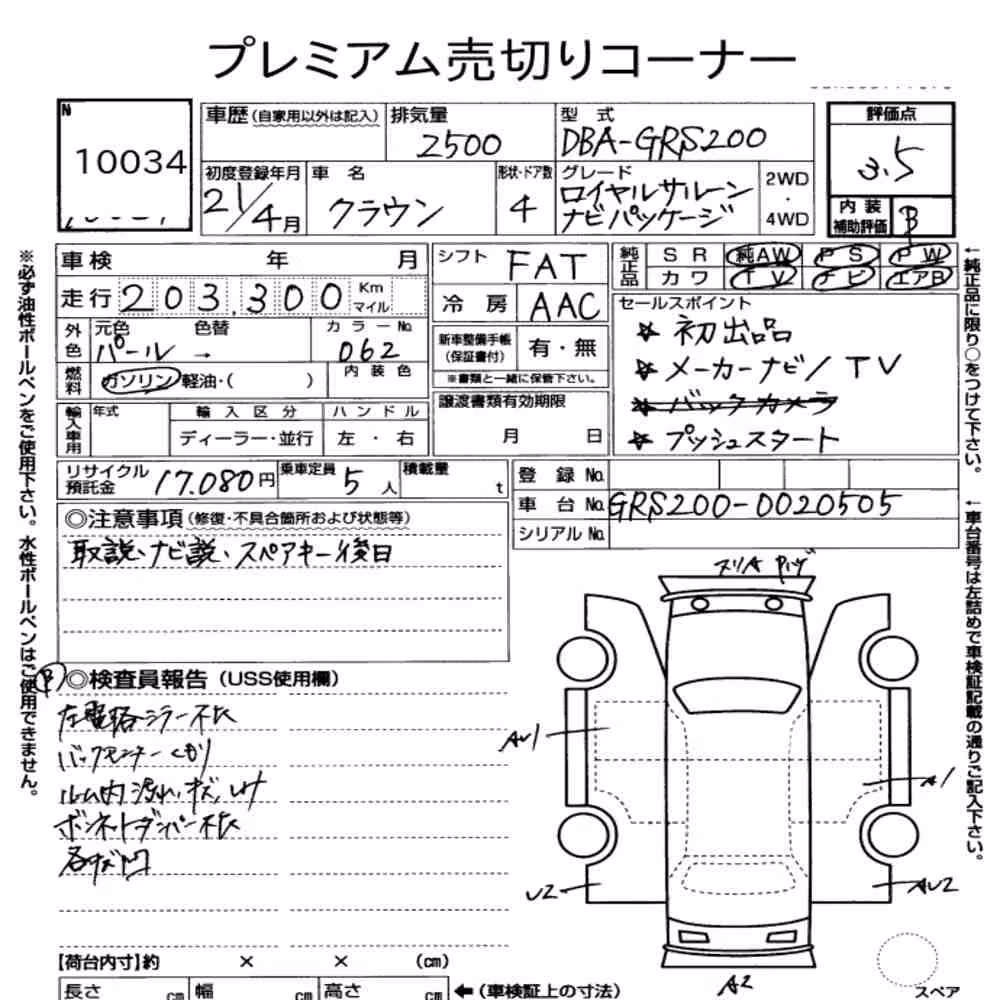 プレミアム売切りコーナー
N
10034
車歴(自家用以外は記入)
排気量
2500
型 式
DBA-GRS200
評価点
3.5
初度登録年月
21/4月
車 名
クラウン
形状・ドア数
4
グレード
ロイヤルサルーン
ナビパッケージ
2WD
・
4WD
内 装
補助評価
B
車検 年 月
シフト
FAT
純正品
SR 純AW PS PW
カワ TV ナビ エアB
走行 203,300 Km
マイル
冷 房
AAC
セールスポイント
★ 初出品
★ メーカーナビ/TV
★ バックカメラ
★ プッシュスタート
外色
元色
パール
→
色替
カラーNo.
062
新車整備手帳
(保証書付)
有・無
※書類と一緒に保管下さい。
燃料
ガソリン・軽油・( )
内 装 色
譲渡書類有効期限
月 日
輸入車用
年式
輸 入 区 分
ディーラー・並行
ハ ン ド ル
左 ・ 右
リサイクル
預託金
17.080円
乗車定員
5人
積載量
t
登 録 No.
車 台 No.
GRS200-0020505
シリアル No.
◎注意事項(修復・不具合箇所および状態等)
取説、ナビ説、スペアキー後日
B
◎検査員報告(USS使用欄)
ルーム内汚れ、キズ、
各キズ凹
A1
U2
A2
【荷台内寸】約 × × (cm)
長さ cm 幅 cm 高さ cm
←(車検証上の寸法)
スペア
※必ず油性ボールペンをご使用下さい。水性ボールペンはご使用できません。
←純正品に限り○をつけて下さい。
←車台番号は左詰めで車検証記載の通りご記入下さい。